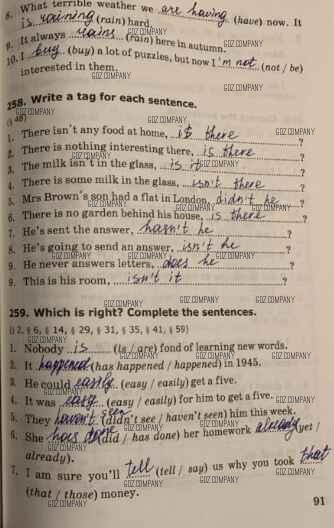 8. What terrible weather we are having (have) now. It
is raining (rain) hard.
9. It always rains (rain) here in autumn.
10. I buy (buy) a lot of puzzles, but now I 'm not (not / be)
interested in them.
258. Write a tag for each sentence.
1. There isn't any food at home, is there ?
2. There is nothing interesting there, is there ?
3. The milk isn't in the glass, is it ?
4. There is some milk in the glass, isn't there ?
5. Mrs Brown's son had a flat in London, didn't he ?
6. There is no garden behind his house, is there ?
7. He's sent the answer, hasn't he ?
8. He's going to send an answer, isn't he ?
9. He never answers letters, does he ?
9. This is his room, isn't it ?
259. Which is right? Complete the sentences.
(§ 2, § 6, § 14, § 29, § 31, § 35, § 41, § 59)
1. Nobody is (is / are) fond of learning new words.
2. It happened (has happened / happened) in 1945.
3. He could easily (easy / easily) get a five.
4. It was easy (easy / easily) for him to get a five.
5. They haven't seen (didn't see / haven't seen) him this week.
6. She has done (did / has done) her homework already (yet /
already).
7. I am sure you'll tell (tell / say) us why you took that
(that / those) money.
91
GDZ.COMPANY